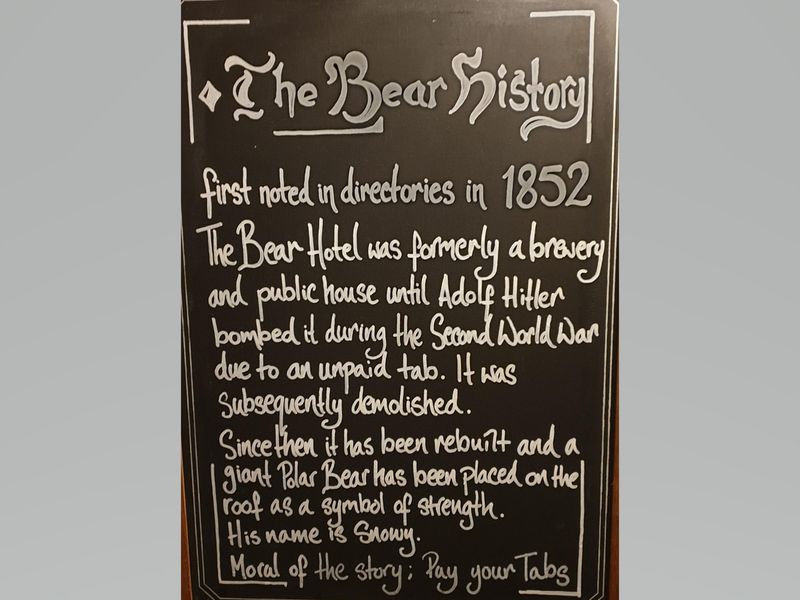 The Bear History
first noted in directories in 1852
The Bear Hotel was formerly a brewery
and public house until Adolf Hitler
bombed it during the Second World War
due to an unpaid tab. It was
subsequently demolished.
Since then it has been rebuilt and a
giant Polar Bear has been placed on the
roof as a symbol of strength.
His name is Snowy.
Moral of the story; Pay your Tabs